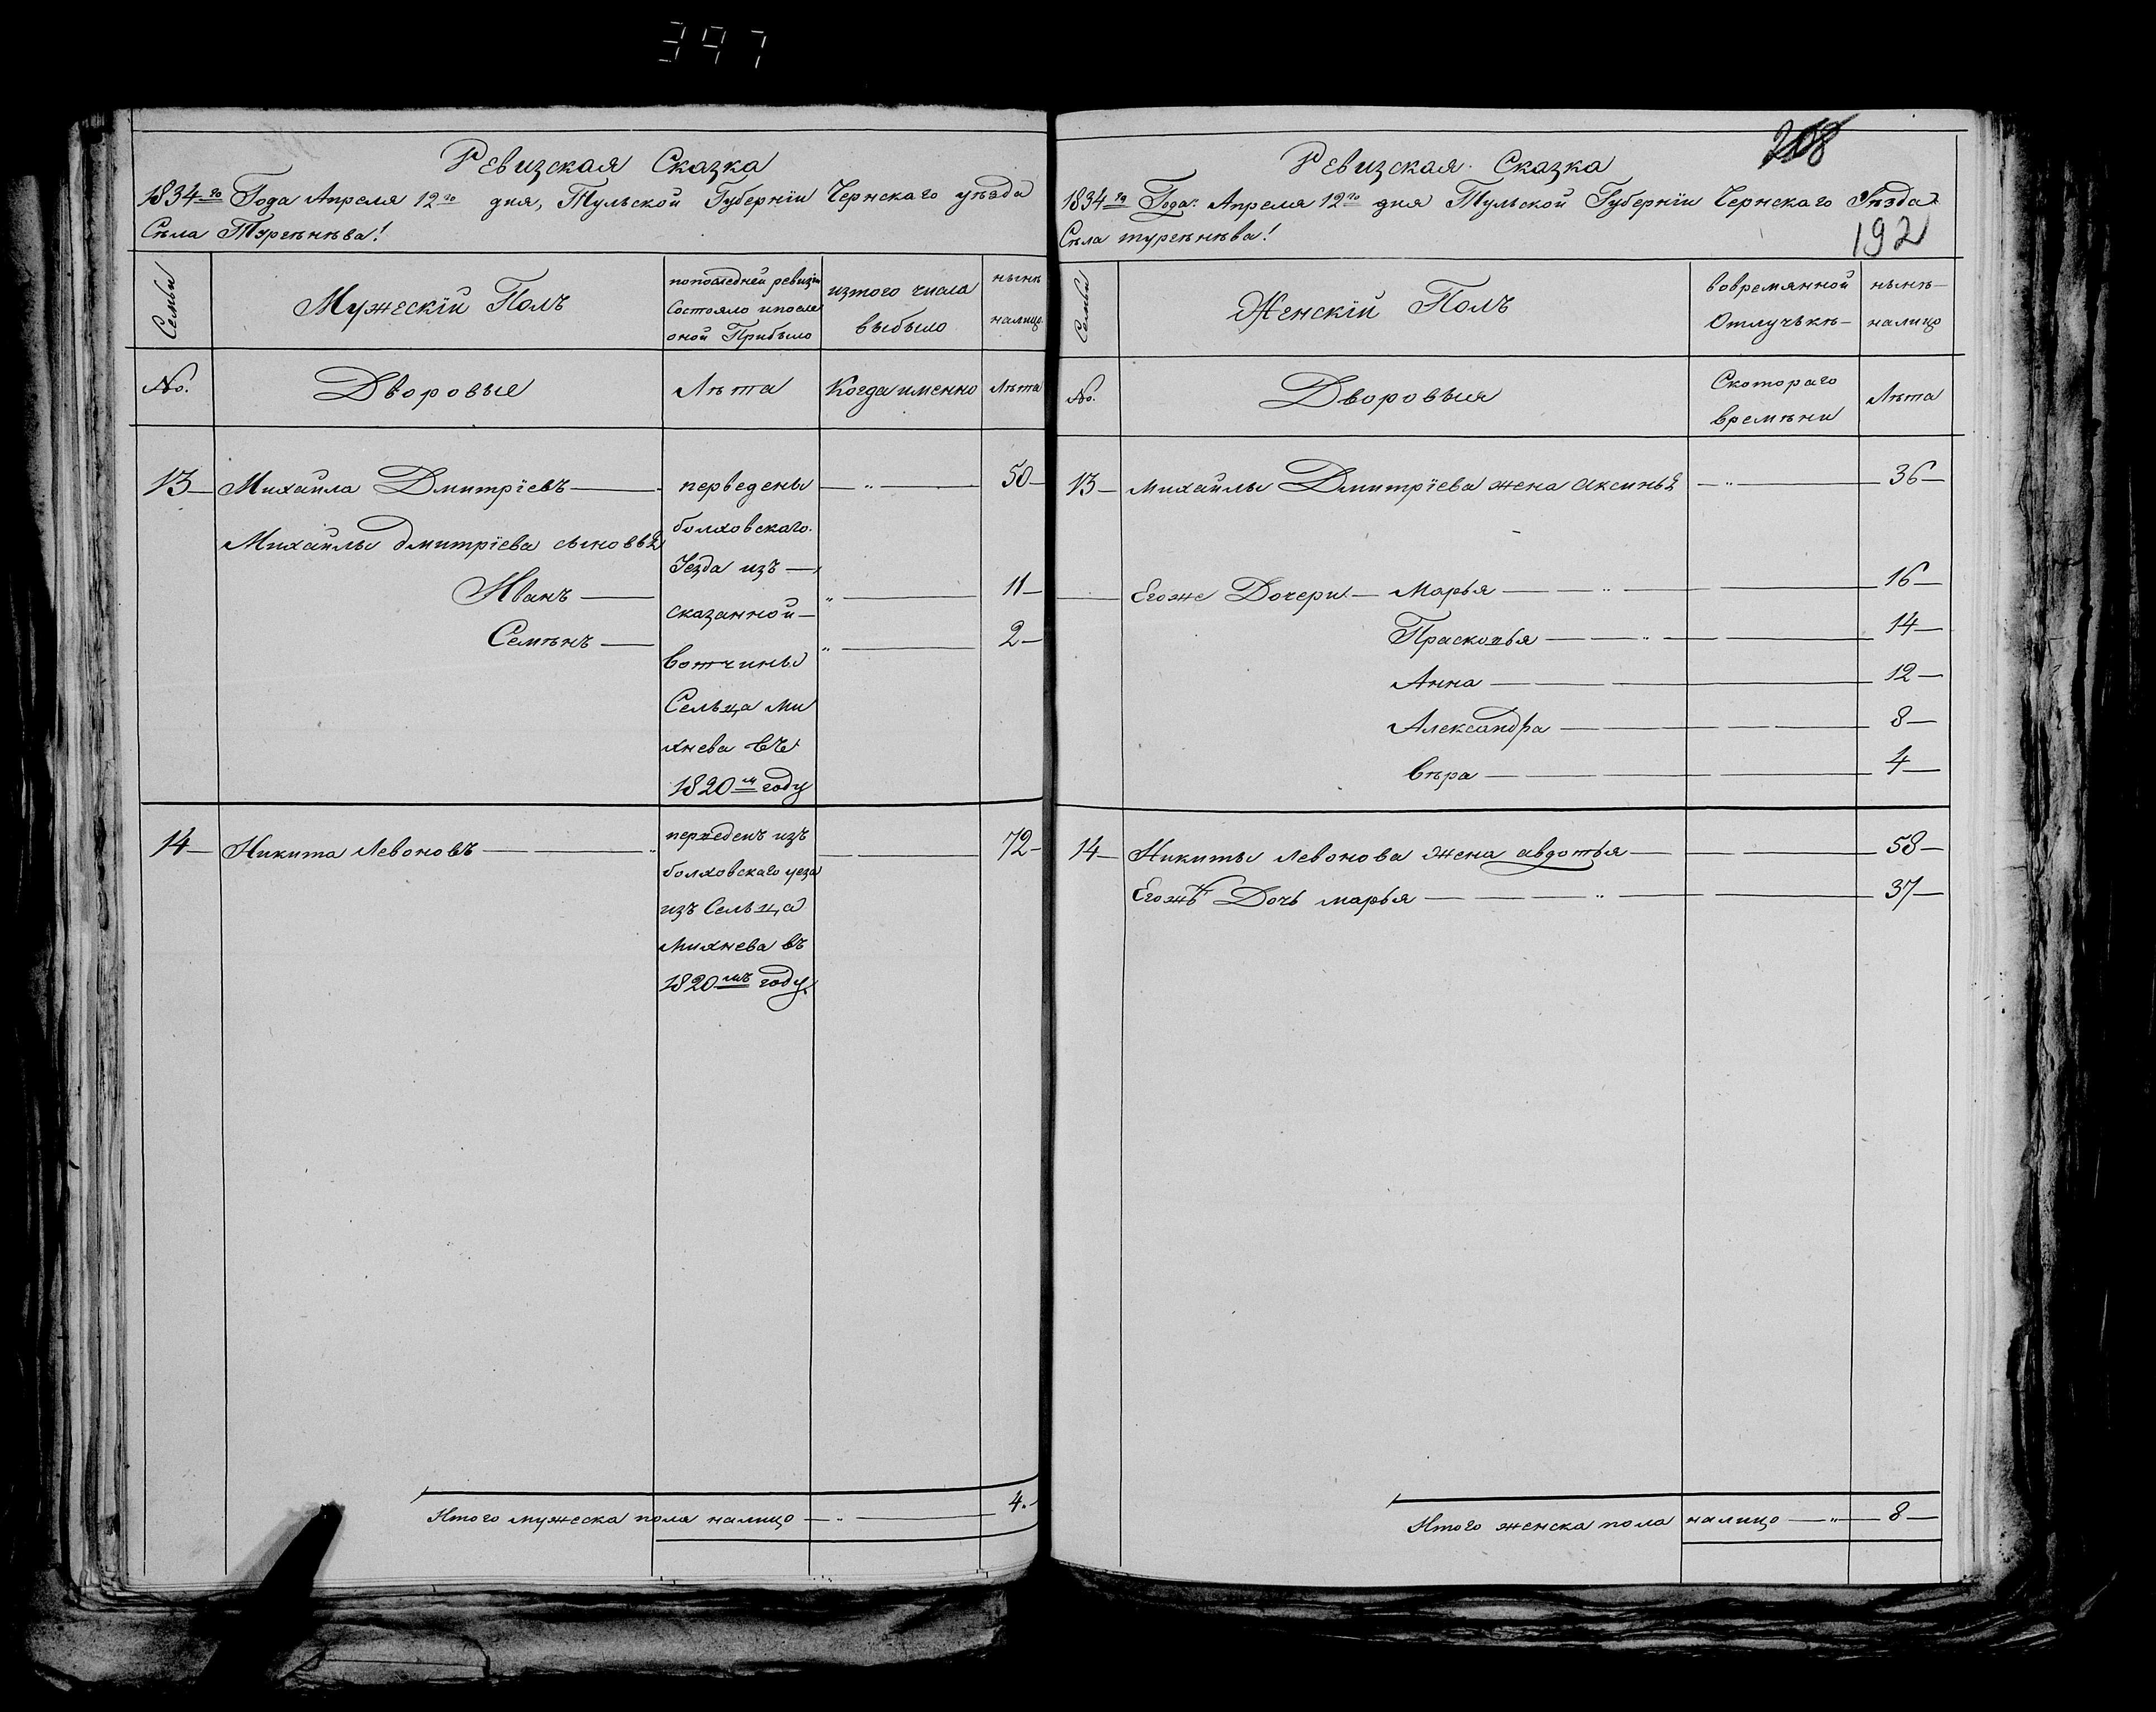 397
Ревизская Сказка
1834го Года Апреля 12го дня, Тульской Губерніи Чернскаго уѣзда
Сѣла Тургѣнѣва!
Семьи
Мужескій Полъ
попоследней ревизіи
Состояло ипосле
оной Прибыло
изтого числа
выбыло
нынѣ
налицо
No.
Дворовые
Лѣта
Когда именно
Лѣта
13 Михайла Дмитріевъ переведены 50
Михайлы дмитріева сыновья
болховскаго
Уезда изъ
Иванъ 11
сказанной
Семѣнъ 2
вотчины
Сельца Ми
хнева въ
1820м году
14 Никита Левоновъ переведенъ изъ 72
болховскаго уезда
изъ Сельца
Михнева въ
1820мъ году
Итого мужеска пола налицо 4.
208
Ревизская Сказка
1834го Года Апреля 12го дня Тульской Губерніи Чернскаго Уѣзда
Сѣла тургѣнѣва!
192
Семьи
Женскій Полъ
вовремянной
Отлучькѣ
нынѣ
налицо
No.
Дворовыя
Скотораго
времѣни
Лѣта
13 Михайлы Дмитріева жена аксинья 36
Егоже Дочери Марья 16
Прасковья 14
Анна 12
Александра 8
вѣра 4
14 Никиты левонова жена авдотья 58
Егожѣ Дочь марья 37
Итого женска пола налицо 8